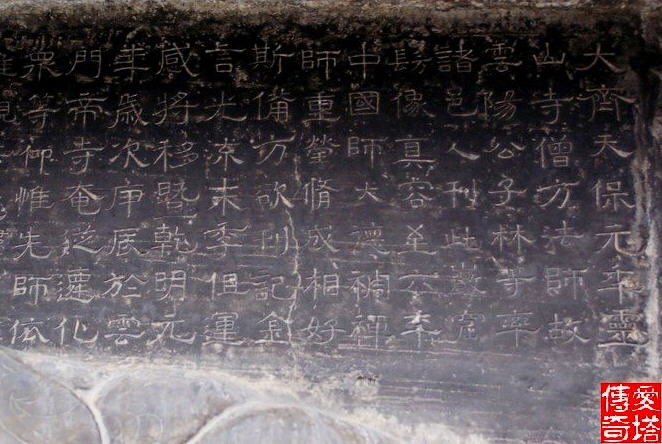 大齊天保元年靈
山寺僧方法師故
雲陽公子林等率
諸邑人刊此巖窟
髣像真容至六年
中國師大德稠禪
師重瑩脩成相好
斯備方欲刊記金
言光流末季但運
感將移暨乾明元
年歲次庚辰於雲
門帝寺奄從遷化
眾等仰惟先師依
愛塔
傳奇